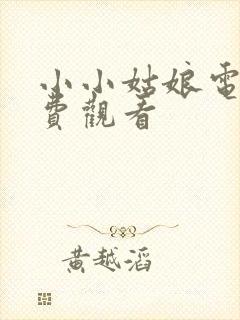 小小姑娘電
費觀看
黃越滔